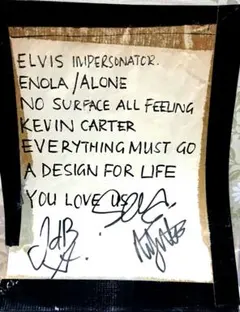 ELVIS IMPERSONATOR.
ENOLA/ALONE
NO SURFACE ALL FEELING
KEVIN CARTER
EVERYTHING MUST GO
A DESIGN FOR LIFE
YOU LOVE US
JdB